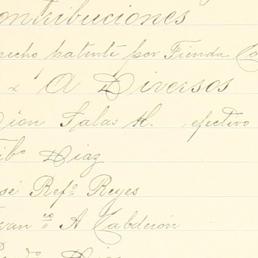 ontribuciones
recho patente por Tienda Co
" A Diversos
Dion Salas H. efectivo
ibo Diaz
sé Refo Reyes
van co A Calderón
Diaz